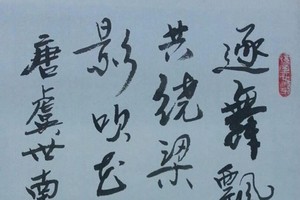 逐舞飘
共绕梁
影吹花
唐虞世南